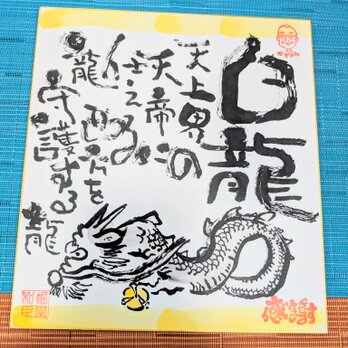 白龍
天上界の
天帝に
仕える
白龍
西方を
守護する
龍
感謝